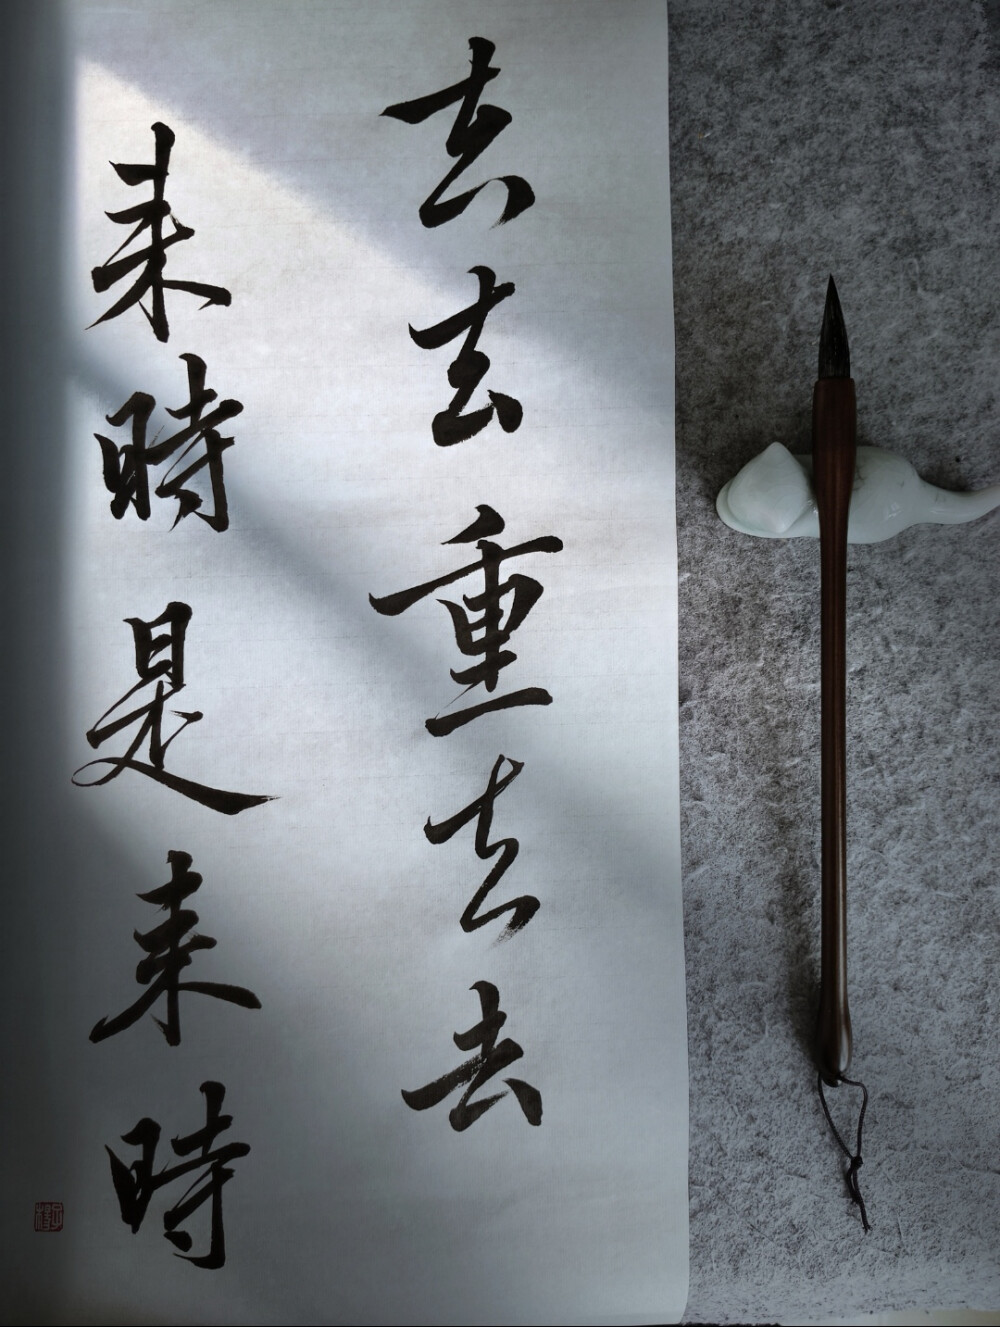 去去重去去
来時是来時